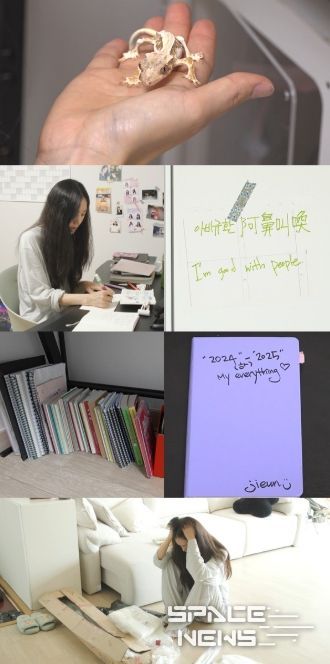 아비규환 阿鼻叫喚
I'm good with people.
"2024" - "2025"
My everything♡
jieun
SPACE
NEWS